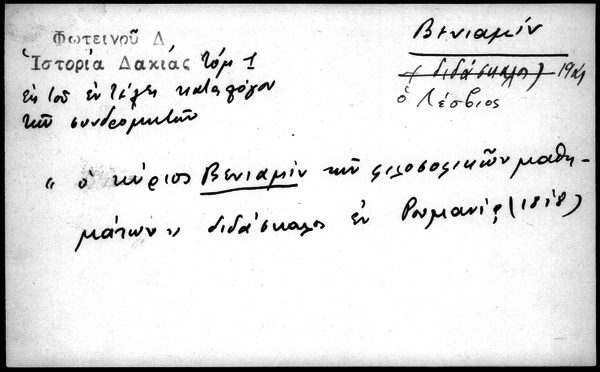 Φωτεινοῦ Δ
Ἱστορία Δακίας τόμ 1
εκ του εν τέλει καταλόγου
των συνδρομητών
Βενιαμίν
(διδάσκαλος)
ὁ Λέσβιος
" ὁ κύριος Βενιαμίν των φιλοσοφικῶν μαθη-
μάτων „ διδάσκαλος ἐν Ρουμανίᾳ (1818)